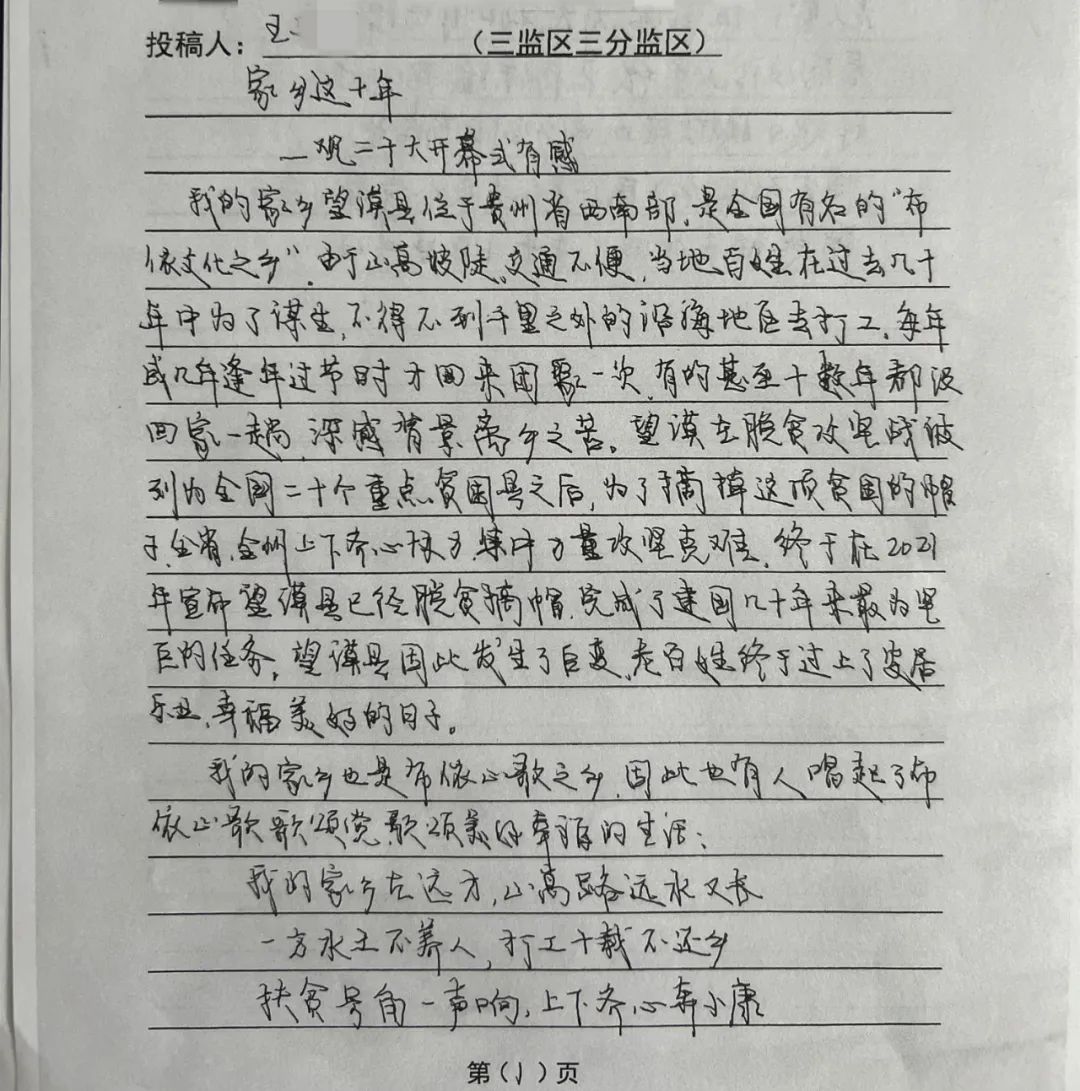 投稿人：王 （三监区三分监区）
家乡这十年
—观二十大开幕式有感
我的家乡望谟县位于贵州省西南部，是全国有名的“布
依文化之乡”。由于山高坡陡，交通不便，当地百姓在过去几十
年中为了谋生，不得不到千里之外的沿海地区去打工，每年
或几年逢年过节时才回来团聚一次，有的甚至十数年都没
回家一趟，深感背景离乡之苦。望谟在脱贫攻坚战被
列为全国二十个重点贫困县之后，为了摘掉这顶贫困的帽
子，全省、全州上下齐心协力，集中力量攻坚克难，终于在2021
年宣布望谟县已经脱贫摘帽，完成了建国几十年来最为坚
巨的任务。望谟县因此发生了巨变，老百姓终于过上了安居
乐业、幸福美好的日子。
我的家乡也是布依山歌之乡，因此也有人唱起了布
依山歌歌颂党，歌颂美好幸福的生活：
我的家乡在远方，山高路远水又长
一方水土不养人，打工十载不还乡
扶贫号角一声响，上下齐心奔小康
第（1）页